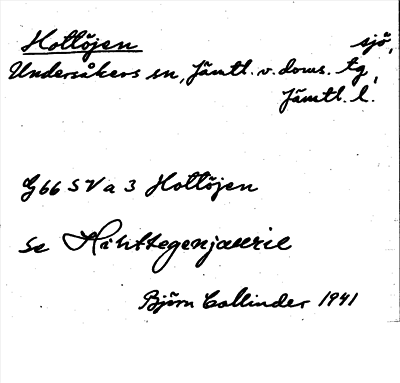 Hottöjen sjö,
Undersåkers sn, Jämtl. v. doms. tg,
Jämtl. l.
G66 SV a 3 Hottöjen
Se Håhttegenjaurie
Björn Collinder 1941